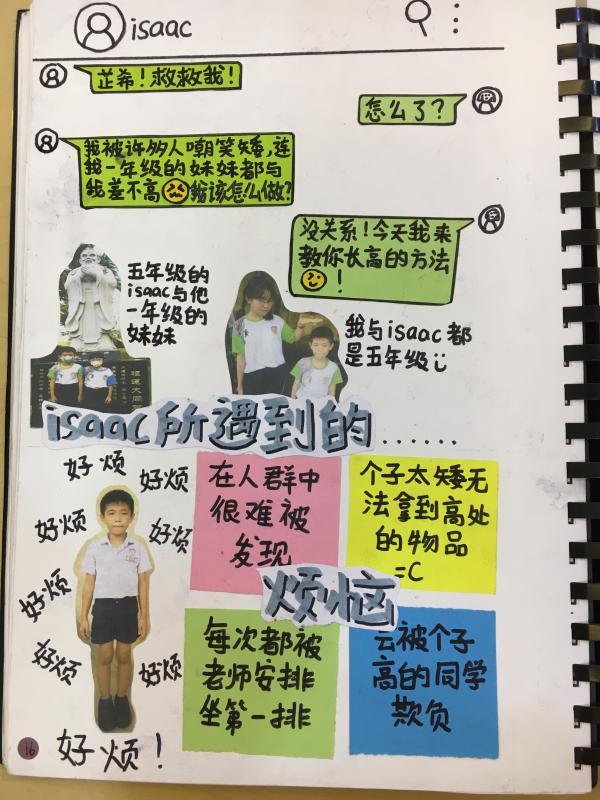 isaac
芷希！救救我！
怎么了？
我被许多人嘲笑矮,连
我一年级的妹妹都与
我差不高 我该怎么做?
没关系！今天我来
教你长高的方法
！
五年级的
isaac与他
一年级的
妹妹
我与isaac都
是五年级
isaac所遇到的......
好烦
好烦
好烦
好烦
好烦
好烦
好烦
好烦！
在人群中
很难被
发现
个子太矮无
法拿到高处
的物品
=C
烦恼
每次都被
老师安排
坐第一排
会被个子
高的同学
欺负
16